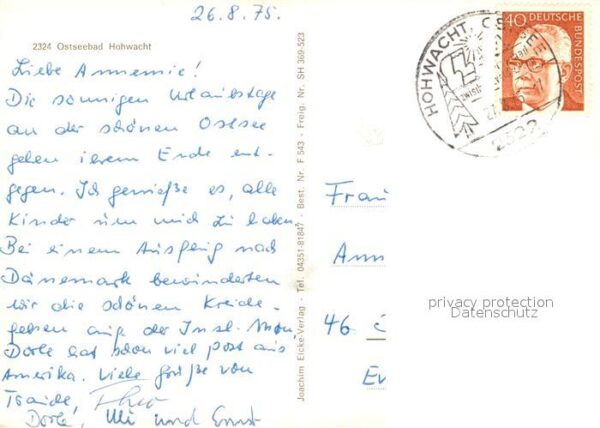 26.8.75.
2324 Ostseebad Hohwacht
Liebe Annemie!
Die sonnigen Urlaubstage
an der schönen Ostsee
gehen ihrem Ende ent-
gegen. Ich genieße es, alle
Kinder um mich zu haben.
Bei einem Ausflug nach
Dänemark bewunderten
wir die schönen Kreide-
felsen auf der Insel Mön,
Dorle hat schon viel Post aus
Amerika. Viele Grüße von
Traude, Theo
Dorle, Uli und Ernst
Joachim Eicke-Verlag - Tel. 04351-81847 - Best. Nr. F 543 - Freig. Nr. SH 369-523
HOHWACHT, OSTSEE
2322
40 DEUTSCHE
BUNDESPOST
Frau
Ann
46
Ev
privacy protection
Datenschutz